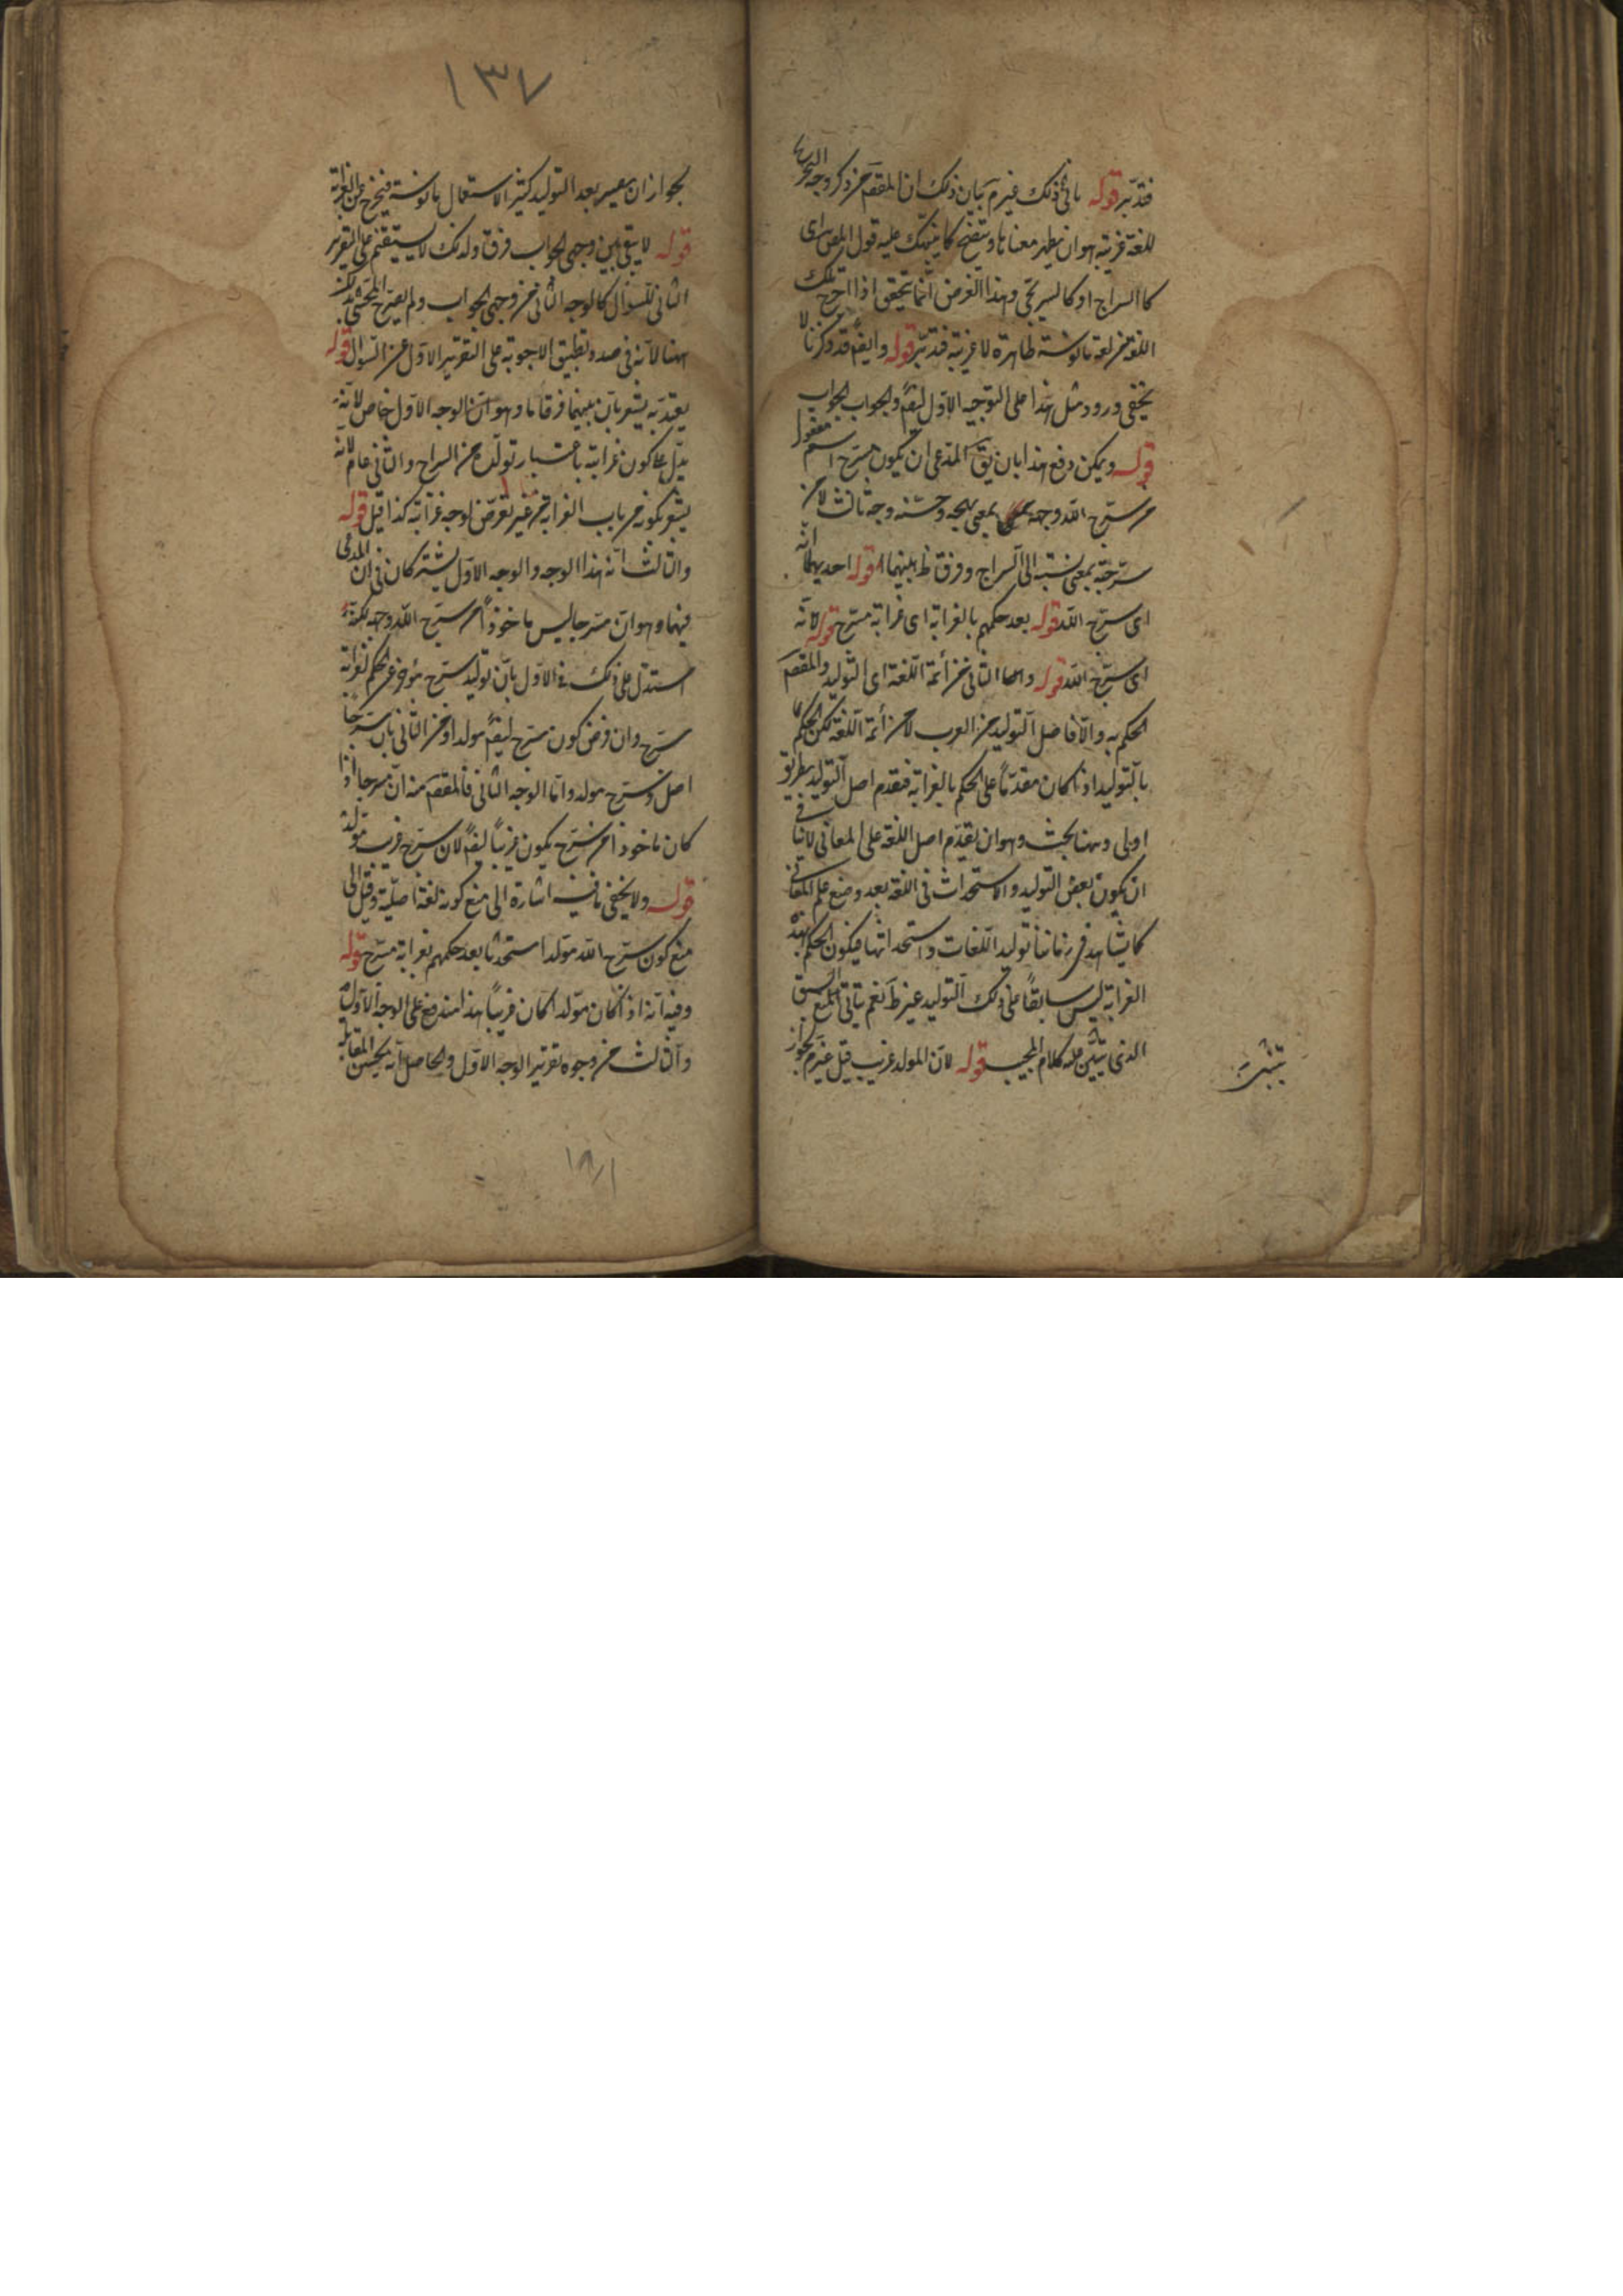 فتدبّر قوله يأبى ذلك غير مَ بيان ذلك ان المقصَ من ذكر وجه التخريج
للغة غريبة هو ان يظهر معناها ويتضح كما ينبهك عليه قول المص اى
كالسراج او كالسريجى وهذا الغرض انما يتحقق اذا اخرج تلك
اللغة من لغة مأنوسة ظاهرة لا غريبة فتدبّر قوله وايضً قد ذكرنا لا
يخفى ورود مثل هذا على التوجيه الاول ايضً والجواب الجواب
قوله ويمكن دفع هذا بان يقَ المدعى ان يكون مسرّج اسم مفعول
من سرّج الله وجهه بمعنى بهجه وحسّنه وجه ثالث لا من
سرّجته بمعنى نسبته الى السراج وفرق ظَ بينهما قوله احديهما انه
اى سرّج الله قوله بعد حكمهم بالغرابة اى غرابة مسرّج قوله لانه
اى سرّج الله قوله واما الثانى فمن أئمة اللغة اى التوليد والمقصَ
الحكم به والا فاصل التوليد من العرب لا من أئمة اللغة لكن الحكم
بالتوليد اذا كان مقدّماً على الحكم بالغرابة فتقدم اصل التوليد بطريق
اولى وههنا بحث وهو ان تقدّم اصل اللغة على المعانى لا ينافى
ان يكون بعض التوليد والاستحداث فى اللغة بعد وضع علم المعانى
كما يشاهد فى زماننا توليد اللغات واستحداثها فيكون الحكم بهذه
الغرابة ليس سابقاً على ذلك التوليد غير ظَ نعم يتأتى المنع السبق
الذى يبتنى عليه كلام المجيب قوله لان المولد غريب قيل غير مَ لجواز
لجواز ان يصير بعد التوليد كثير الاستعمال مأنوسة فيخرج عن الغرابة
قوله لا يبقى بين وجهى الجواب فرق ولذلك لا يستقيم على التقرير
الثانى للسؤال كالوجه الثانى من وجهى الجواب ولم يصرّح المحشى بذلك
ههنا لانه فى صدد تطبيق الاجوبة على التقرير الاول عن السؤال قوله
يعتدّ به يشعر بان بينهما فرقا ما وهو ان الوجه الاول خاص لانه
يدل على كون غرابته باعتبار تولّده من السراج والثانى عام لانه
يشعر بكونه من باب الغرابة من غير تعرّض لوجه غرابته كذا قيل قوله
والثالث انه هذا الوجه والوجه الاول يشتركان فى ان المدعى
فيهما وهو ان مسرجا ليس ماخوذاً من سرّج الله وجهه لكنه
استدل على ذلك فى الاول بان توليد سرّج مؤخر عن الحكم بغرابة
مسرّج وان فرض كون مسرّج ايضً مولدا وفى الثانى بان مسرّجا
اصل وسرّج مولد واما الوجه الثانى فالمقصَ منه ان مسرجا اذا
كان ماخوذا من سرّج يكون غريباً ايضً لان سرّج غريب مولّد
قوله ولا يخفى ما فيه اشارة الى منع كونه لغة اصليّة وقيل الى
منع كون سرّج الله مولّدا مستحدثا بعد حكمهم بغرابة مسرّج قوله
وفيه انه اذا كان مولّدا كان غريباً هذا مندفع على الوجه الاول
والثالث من وجوه تقرير الوجه الاول والحاصل انه يحسن المقابلة
١٣٧